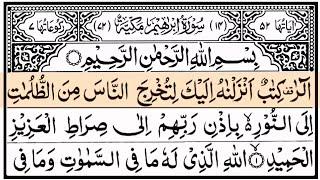 اٰیَاتُهَا ٥٢ (١٤) سُوْرَةُ اِبْرٰهِیْمَ مَكِّیَّةٌ (٧٢) رُكُوْعَاتُهَا ٧
بِسْمِ اللّٰهِ الرَّحْمٰنِ الرَّحِیْمِ
الٓرٰ كِتٰبٌ اَنْزَلْنٰهُ اِلَیْكَ لِتُخْرِجَ النَّاسَ مِنَ الظُّلُمٰتِ
اِلَى النُّوْرِ بِاِذْنِ رَبِّهِمْ اِلٰى صِرَاطِ الْعَزِیْزِ
الْحَمِیْدِ ۝١ اللّٰهِ الَّذِیْ لَهٗ مَا فِی السَّمٰوٰتِ وَمَا فِی